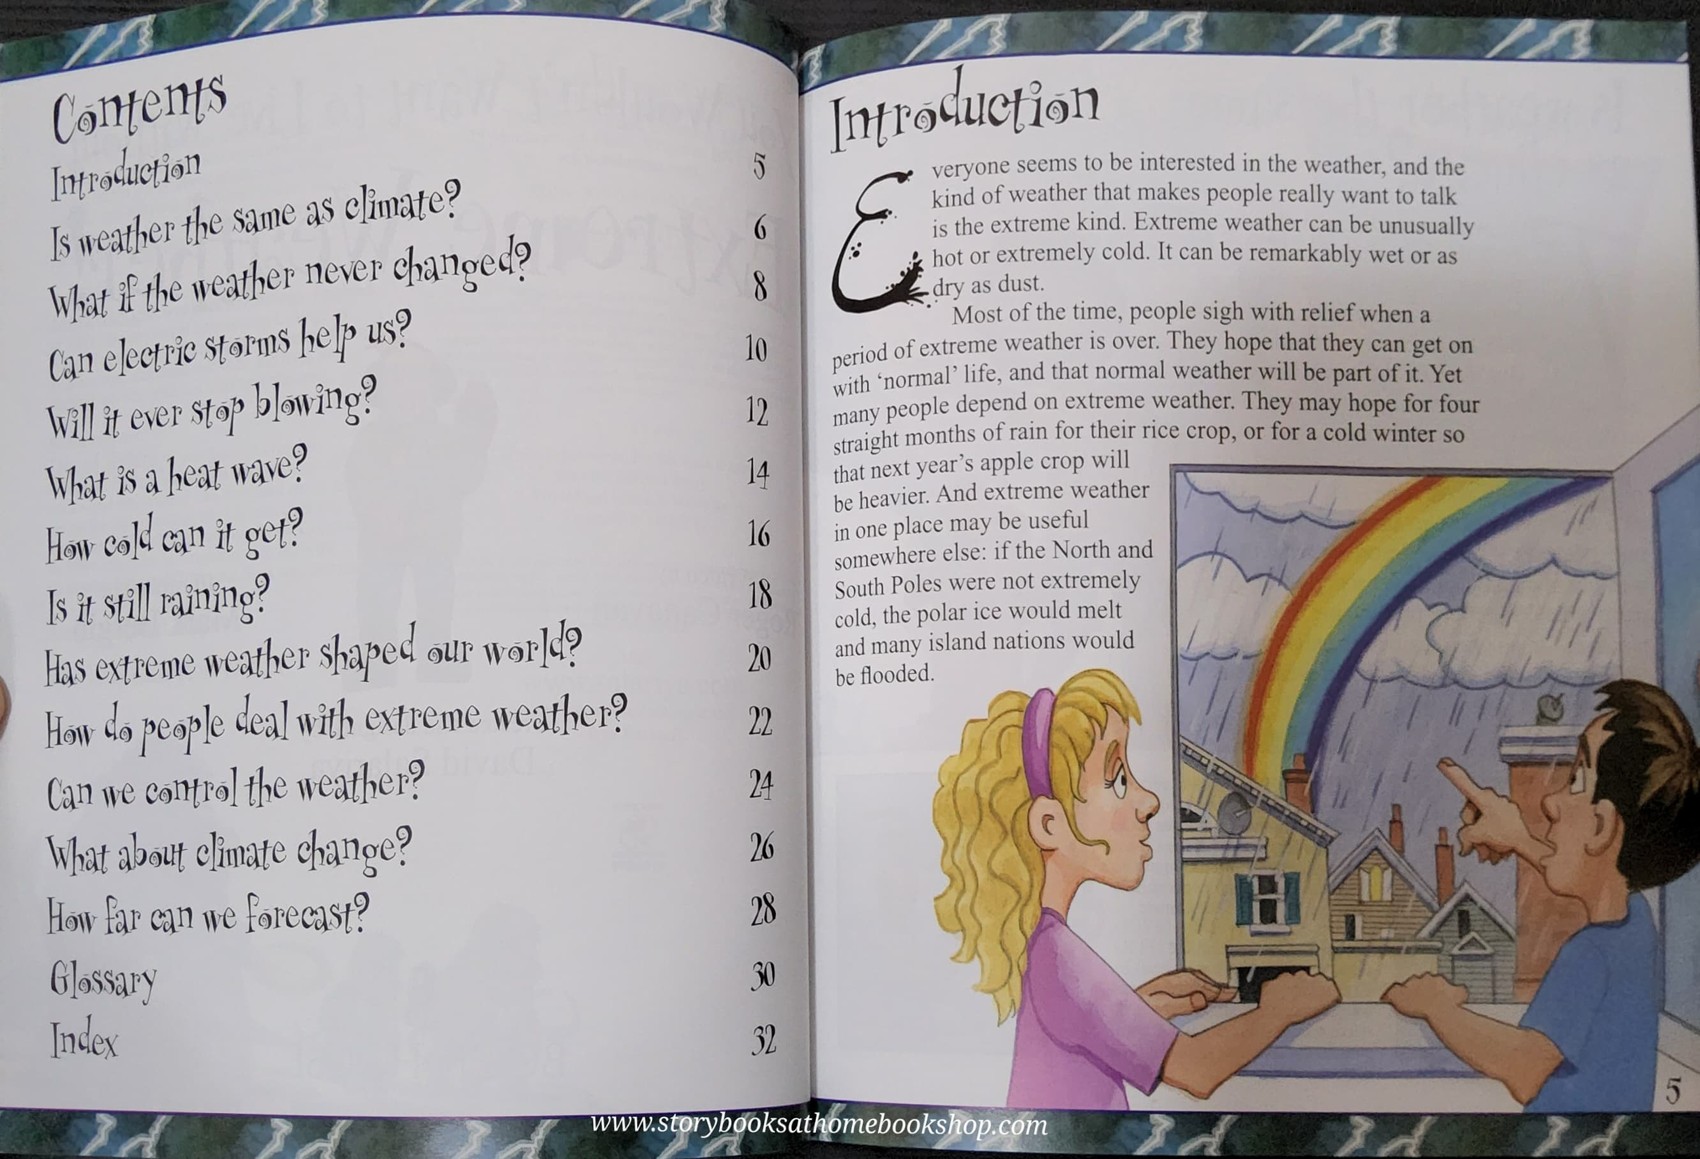 Contents
Introduction 5
Is weather the same as climate? 6
What if the weather never changed? 8
Can electric storms help us? 10
Will it ever stop blowing? 12
What is a heat wave? 14
How cold can it get? 16
Is it still raining? 18
Has extreme weather shaped our world? 20
How do people deal with extreme weather? 22
Can we control the weather? 24
What about climate change? 26
How far can we forecast? 28
Glossary 30
Index 32
Introduction
Everyone seems to be interested in the weather, and the
kind of weather that makes people really want to talk
is the extreme kind. Extreme weather can be unusually
hot or extremely cold. It can be remarkably wet or as
dry as dust.
Most of the time, people sigh with relief when a
period of extreme weather is over. They hope that they can get on
with ‘normal’ life, and that normal weather will be part of it. Yet
many people depend on extreme weather. They may hope for four
straight months of rain for their rice crop, or for a cold winter so
that next year’s apple crop will
be heavier. And extreme weather
in one place may be useful
somewhere else: if the North and
South Poles were not extremely
cold, the polar ice would melt
and many island nations would
be flooded.
5
www.storybooksathomebookshop.com